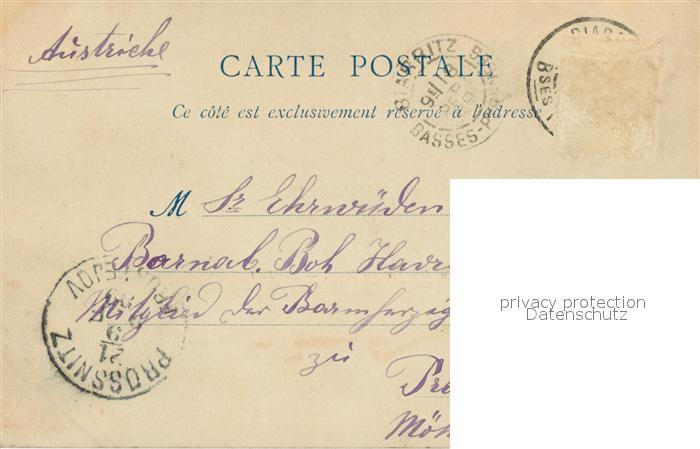 Austriche
CARTE POSTALE
Ce côté est exclusivement réservé à l'adresse
BIARRITZ
BASSES-P
BSES
M Sr Ehrwürden
Barnab. Boh Havr
Mitglied der Barmherzig
zu
Pro
Möh
PROSSNITZ
21
privacy protection
Datenschutz